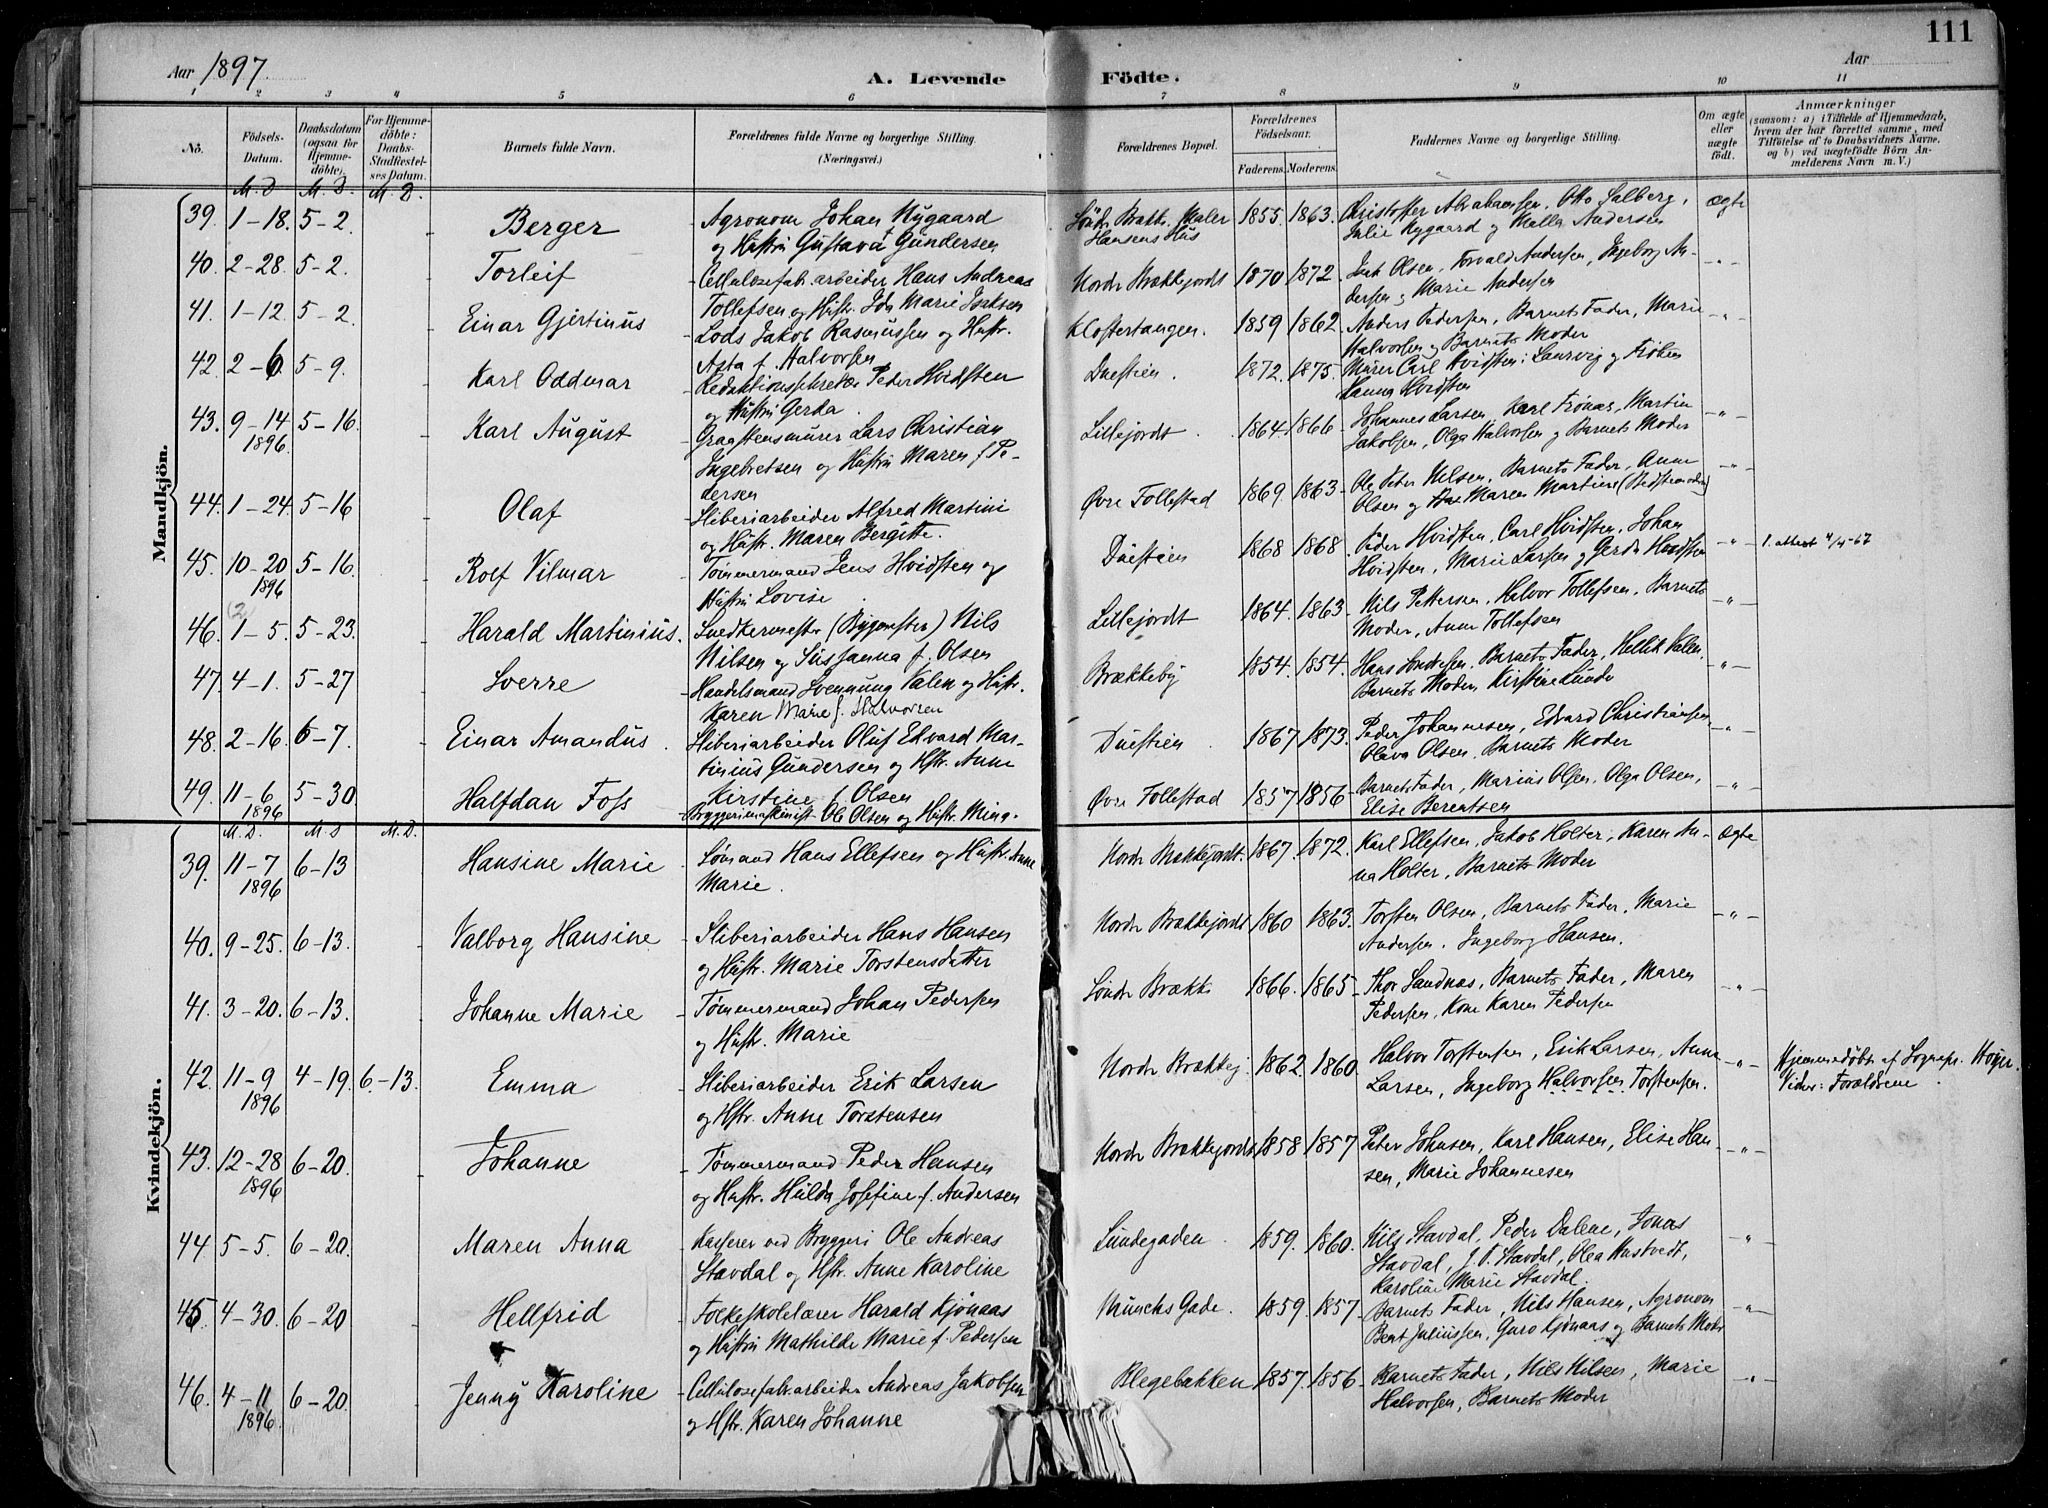 111
Aar 1897. A. Levende Födte. Aar
1 2 3 4 5 6 7 8 9 10 11
No. Födsels-Datum. Daabsdatum (ogsaa for Hjemmedöbte). For Hjemmedöbte: Daabs-Stadfæstelses Datum. Barnets fulde Navn. Forældrenes fulde Navne og borgerlige Stilling. (Næringsvei.) Forældrenes Bopæl. Forældrenes Födselsaar. Faderens. Moderens. Faddernes Navne og borgerlige Stilling. Om ægte eller uægte födt. Anmærkninger (saasom: a) i Tilfælde af Hjemmedaab, hvem der har forrettet samme, med Tilföielse af to Daabsvidners Navne, og b) ved uægtefödte Börn Anmelderens Navn m. V.)
Mandkjön.
M. D. M. D. M. D.
39. 1-18. 5-2. Berger Agronom Johan Nygaard Søndr Brække. Maler 1855. 1863. Christoffer Abrahamsen, Otto Salberg, ægte
og Hustru Gustava f Gundersen Hansens Hus Julie Nygaard og Malla Andersen
40. 2-28. 5-2. - Torleif - Cellulosefabr.arbeider Hans Andreas Nordr Brækkejordt 1870 1872. Olsen, Torvald Andersen, Ingeborg An- -"-
Tollefsen og Hustr. Ida Marie Isaksen dersen og Marie Andersen
41. 1-12. 5-2. - Einar Gjertinus - Lods Jakob Rasmussen og Hustr. Klostertangen. 1859 1862. Anders Pedersen, Barnets Fader, Marie -"-
Asta f. Halvorsen Halvorsen og Barnets Moder
42. 2-6. 5-9. - Karl Oddmar - Redaktionssekretær Peder Hvidsten Duestien. 1872. 1875. Murer Carl Hvidsten i Laurvig og Frøken
og Hustru Gerda. Hanna Hvidsten
43. 9-14 1896 5-16. - Karl August - Graastensmurer Lars Christian Lillejordt. 1864. 1866 - Johannes Larsen, Karl Trønas, Martin -"-
Ingebretsen og Hustru Maren f Pe- Jakobsen, Olga Halvorsen og Barnets Moder
dersen
44. 1-24. 5-16 - Olaf - Sliberiarbeider Alfred Martini Øvre Follestad 1869 1863. Ole Peter Nilsen, Barnets Fader, Anne -"-
og Hustr. Maren Bergitte. Olsen og Maren Martine (Bedstemoder)
45. 10-20 1896 5-16. - Rolf Vilmar - Tømmermand Jens Hvidsten og Duestien 1868 1868. Peder Hvidsten, Carl Hvidsten, Johan -"- 1. attest 4/4-67
Hustru Lovise. Hvidsten, Marie Larsen og Gerda Hvidsten
46. (2) 1-5. 5-23. Harald Martinius. Snedkermester (Bygmester) Nils Lillejordt 1864. 1863. Nils Pettersen, Halvor Tollefsen, Barnets -"-
Nilsen og Susanna f. Olsen Moder, Anne Tollefsen
47. 4-1. 5-27 - Sverre - Handelsmand Svennung Valen og Hustr. Brækkeby 1854. 1854. Hans Andersen, Barnets Fader, Hellik Valen, -"-
Karen Marie f. Halvorsen Barnets Moder, Kirstine Lunde
48. 2-16. 6-7. - Einar Amandus. - Sliberiarbeider Oluf Edvard Mar- Duestien. 1867 1873. Peder Johannesen, Edvard Christiansen, -"-
tinius Gundersen og Hstr. Anne Olava Olsen, Barnets Moder
Kirstine f. Olsen
49. 11-6 1896 5-30. - Halfdan Foss - Bryggerimaskinist Ole Olsen og Hustr. Mina. Øvre Follestad 1857 1856. Barnets Fader, Marius Olsen, Olga Olsen, -"-
Elise Berentsen
Kvindekjön.
M. D. M. D M. D.
39. 11-7 1896 6-13 Hansine Marie - Sømand Hans Ellefsen og Hustr. Anne Nordr Brækkejordt. 1867. 1872. Karl Ellefsen, Jakob Holter, Karen An- ægte
Marie. na Holter, Barnets Moder
40. 9-25. 6-13. - Valborg Hansine - Sliberiarbeider Hans Hansen Nordr Brækkejordt 1860 1863. Torsten Olsen, Barnets Fader, Marie -"-
og Hustr. Marie Torstensdatter Andersen, Ingeborg Hansen.
41. 3-20. 6-13. - Johanne Marie - Tømmermand Johan Pedersen Søndr Brække 1866. 1865 - Thor Sandnas, Barnets Fader, Maren -"-
og Hustr. Marie Pedersen, Kone Karen Pedersen
42. 11-9 1896 4-19. 6-13. Emma - Sliberiarbeider Erik Larsen Nordr Brækkej. 1862. 1860. Halvor Torstensen, Erik Larsen, Anne -"- Hjemmedøbt af Sognepr. Høyer.
og Hstr. Anne Torstensen Larsen, Ingeborg Halvorsen Torstensen. Vidner: Forældrene
43. 12-28 1896 6-20. - Johanne - Tømmermand Peder Hansen Nordr Brækkejordt 1858 1857 Peter Johnsen, Karl Hansen, Elise Han -"-
og Hustr. Hulda Josefine f. Andersen sen, Marie Johannesen
44 5-5. 6-20. - Maren Anna - Kasserer ved Bryggeri Ole Andreas Lundegaden. 1859. 1860. Nils Stavdal, Peder Dalene, Jonas -"-
Stavdal og Hstr. Anne Karoline Stavdal, J. O. Stavdal, Olea Hustvedt,
Karoline Marie Stavdal.
45 4-30. 6-20 - Hellfrid - Folkeskolelærer Harald Kjønaas Munchs Gade. 1859. 1857. Barnets Fader, Nils Hansen, Agronom -"-
og Hustru Mathilde Marie f. Pedersen Bent Juliussen, Guro Kjønaas og Barnets Moder
46. 4-11 1896. 6-20. - Jenny Karoline - Cellulosefabr.arbeider Andreas Jakobsen Blegebakken 1857. 1856 - Barnets Fader, Nils Nilsen, Marie -"-
og Hstr. Karen Johanne Halvorsen, Barnets Moder